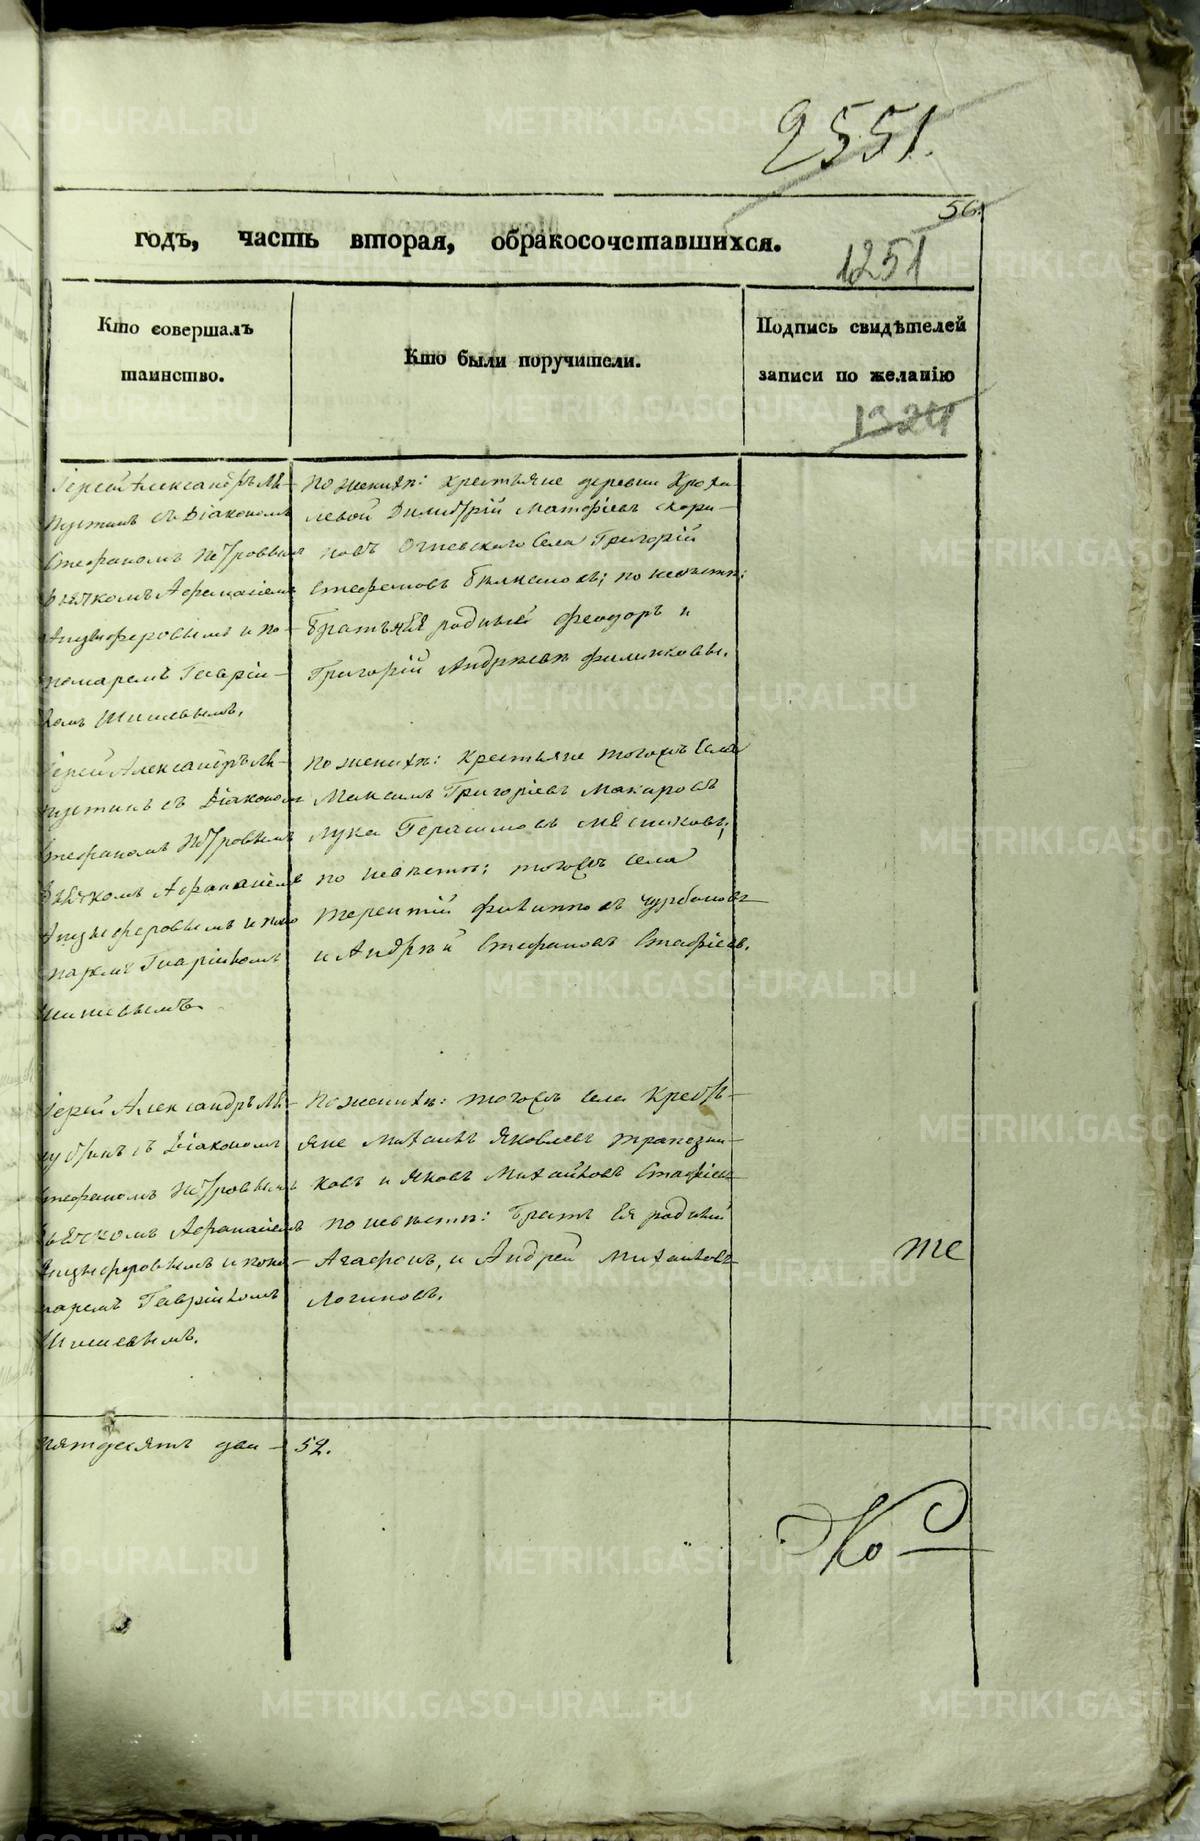 2551.
56.
годъ, часть вторая, обракосочетавшихся.
1251
Кто совершалъ
таинство.
Кто были поручители.
Подпись свидѣтелей
записи по желанію
1324
Іерей Александръ Ля-
пустинъ съ Діакономъ
Стефаномъ Петровымъ
Дьячкомъ Афанасіемъ
Анцыферовымъ и по-
номаремъ Гавріи-
ломъ Шишевымъ.
По женихѣ: крестьяне деревни Хроха
левой Димитрій Матфіевъ Скори-
новъ Огневскаго села Григорій
Стефановъ; по невѣстѣ:
братья ея родные Феодоръ и
Григорій Андреевы Филинковы.
Іерей Александръ Ля-
пустинъ съ Діакономъ
Стефаномъ Петровымъ
Дьячкомъ Афанасіемъ
Анцыферовымъ и поно
марем Гавріиломъ
Шишевымъ.
По женихѣ: крестьяне тогожъ села
Максимъ Григоріевъ Макаровъ
Лука Герасимовъ Мѣсниковъ;
по невѣстѣ: тогожъ села
Терентій Филипповъ Чурбановъ
и Андрей Стефановъ Стафіевъ.
Іерей Александръ Ля-
пустинъ съ Діакономъ
Стефаномъ Петровымъ
Дьячкомъ Афанасіемъ
Анцыферовымъ и поно-
маремъ Гавріиломъ
Шишевымъ.
По женихѣ: тогожъ села Кресть-
яне Михаилъ Яковлевъ Трапезни-
ковъ и Яковъ Михайловъ Стафіевъ
по невѣстѣ: братъ ея родный
Агафонъ, и Андрей Михайловъ
Логиновъ.
те
пятдесятъ два - 52.
Ко
METRIKI.GASO-URAL.RU